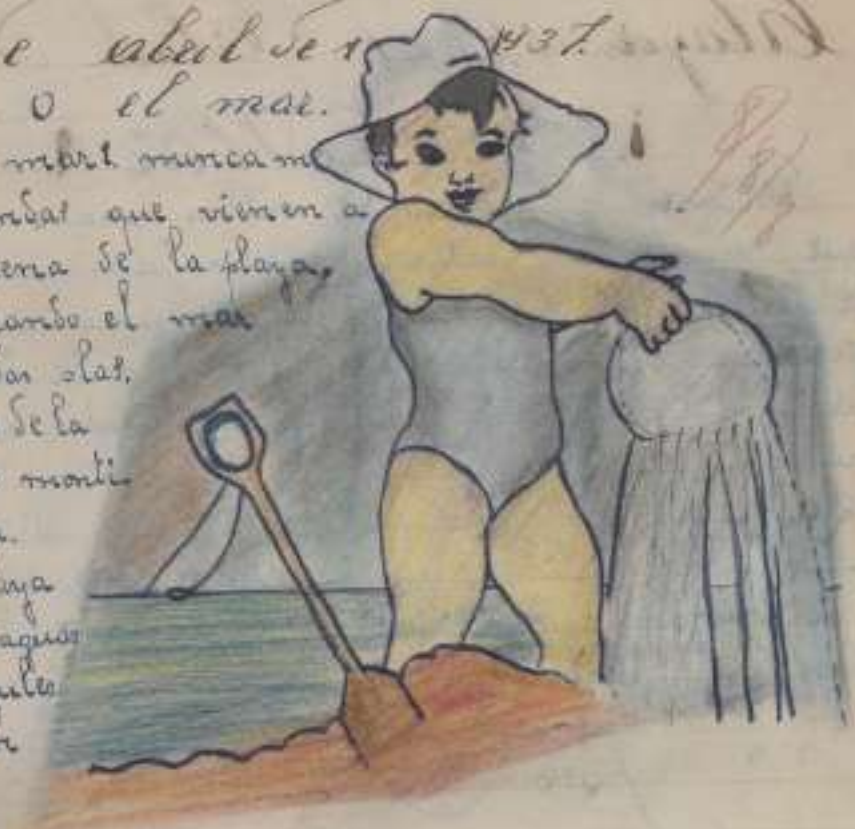 e abril de 1937.
o el mar.
mar! nunca m
ondas que vienen a
ena de la playa,
ando el mar
las olas.
de la
monti
a.
aya
aguas
ules